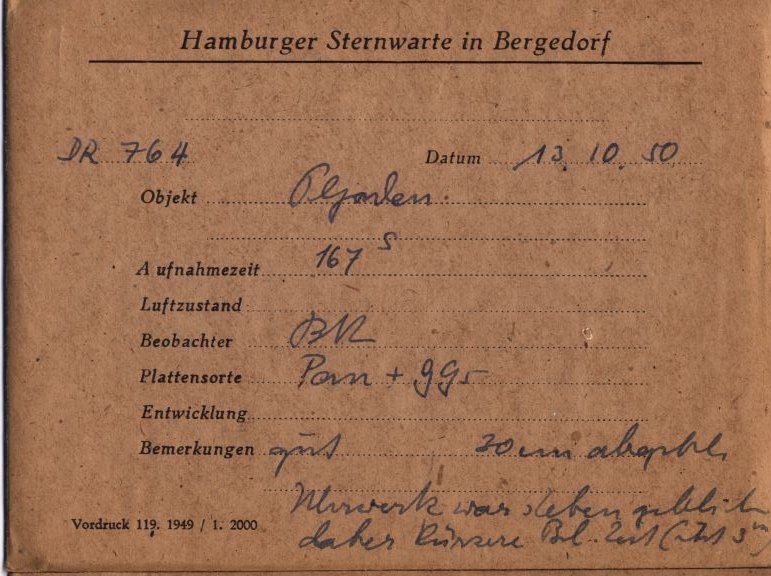 Hamburger Sternwarte in Bergedorf
DR 764 Datum 13. 10. 50
Objekt Plejaden
Aufnahmezeit 167 s
Luftzustand
Beobachter
Plattensorte Pan + GG5
Entwicklung
Bemerkungen gut 30cm abgebl.
Uhrwerk war stehen geblieben
Vordruck 119. 1949 / 1. 2000 daher kürzere Bel. Zeit (statt 3m)